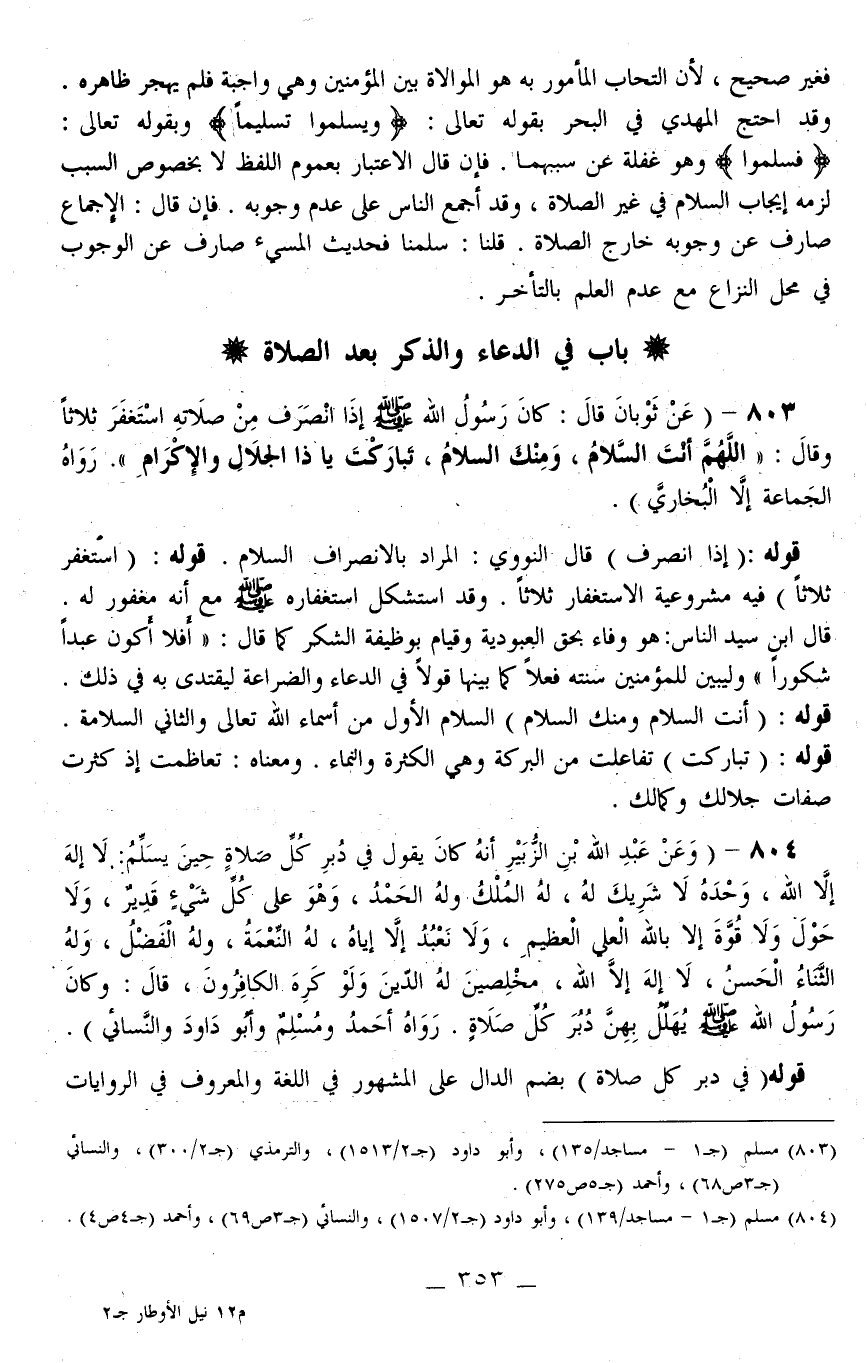 فغير صحيح ، لأن التحاب المأمور به هو الموالاة بين المؤمنين وهي واجبة فلم يهجر ظاهره .
وقد احتج المهدي في البحر بقوله تعالى : ﴿ ويسلموا تسليماً ﴾ وبقوله تعالى :
﴿ فسلموا ﴾ وهو غفلة عن سببهما . فإن قال الاعتبار بعموم اللفظ لا بخصوص السبب
لزمه إيجاب السلام في غير الصلاة ، وقد أجمع الناس على عدم وجوبه . فإن قال : الإجماع
صارف عن وجوبه خارج الصلاة . قلنا : سلمنا فحديث المسيء صارف عن الوجوب
في محل النزاع مع عدم العلم بالتأخر .
✵ باب في الدعاء والذكر بعد الصلاة ✵
٨٠٣ – ( عَنْ ثَوْبانَ قالَ : كانَ رَسُولُ الله ﷺ إذَا انْصَرَف مِنْ صلَاتهِ اسْتَغفَرَ ثلاثاً
وقالَ : « اللَّهُمَّ أنْتَ السَّلَامُ ، وَمِنْكَ السلامُ ، تَبارَكْتَ يا ذا الجلَالِ والإِكْرَامِ ». رَوَاهُ
الجَماعة إلَّا الْبُخاريَّ ) .
قوله :( إذا انصرف ) قال النووي : المراد بالانصراف السلام . قوله : ( استغفر
ثلاثاً ) فيه مشروعية الاستغفار ثلاثاً . وقد استشكل استغفاره ﷺ مع أنه مغفور له .
قال ابن سيد الناس: هو وفاء بحق العبودية وقيام بوظيفة الشكر كما قال : « أَفلا أَكون عبداً
شكوراً » وليبين للمؤمنين سنته فعلاً كما بينها قولاً في الدعاء والضراعة ليقتدى به في ذلك .
قوله : ( أنت السلام ومنك السلام ) السلام الأول من أسماء الله تعالى والثاني السلامة .
قوله : ( تباركت ) تفاعلت من البركة وهي الكثرة والنماء . ومعناه : تعاظمت إذ كثرت
صفات جلالك وكمالك .
٨٠٤ – ( وَعَنْ عَبْدِ الله بْنِ الزُّبَيْرِ أنهُ كانَ يقول في دُبرِ كُلِّ صَلاةٍ حِينَ يسَلِّمُ: لَا إلهَ
إلَّا الله ، وَحْدَهُ لَا شَرِيكَ لهُ ، لهُ المُلْكُ ولهُ الحَمْدُ ، وَهْوَ على كُلِّ شَيْءٍ قَدِيرٌ ، وَلَا
حَوْلَ وَلَا قُوَّةَ إلا بالله الْعلي الْعظيمِ ، وَلَا نَعْبُدُ إلَّا إياهُ ، لهُ النِّعْمَةُ ، ولهُ الْفَضْلُ ، وَلهُ
الثَّنَاءُ الْحَسنُ ، لَا إلهَ إلاَّ الله ، مخْلِصينَ لهُ الدّينَ وَلَوْ كَرِهَ الكافِرُونَ ، قالَ : وكانَ
رَسُولُ الله ﷺ يُهَلِّلُ بِهِنَّ دُبُرَ كُلِّ صَلَاةٍ . رَوَاهُ أحْمدُ ومُسْلِمٌ وأبُو دَاودَ والنَّسائي ) .
قوله( في دبر كل صلاة ) بضم الدال على المشهور في اللغة والمعروف في الروايات
(٨٠٣) مسلم (جـ١ – مساجد/١٣٥) ، وأبو داود (جـ١٥١٣/٢) ، والترمذي (جـ٣٠٠/٢) ، والنسائي
(جـ٣ص٦٨) ، وأحمد (جـ٥ص٢٧٥) .
(٨٠٤) مسلم (جـ١ – مساجد/١٣٩) ، وأبو داود (جـ١٥٠٧/٢) ، والنسائي (جـ٣ص٦٩) ، وأحمد (جـ٤ص٤) .
_ ٣٥٣ _
م١٢ نيل الأوطار جـ٢